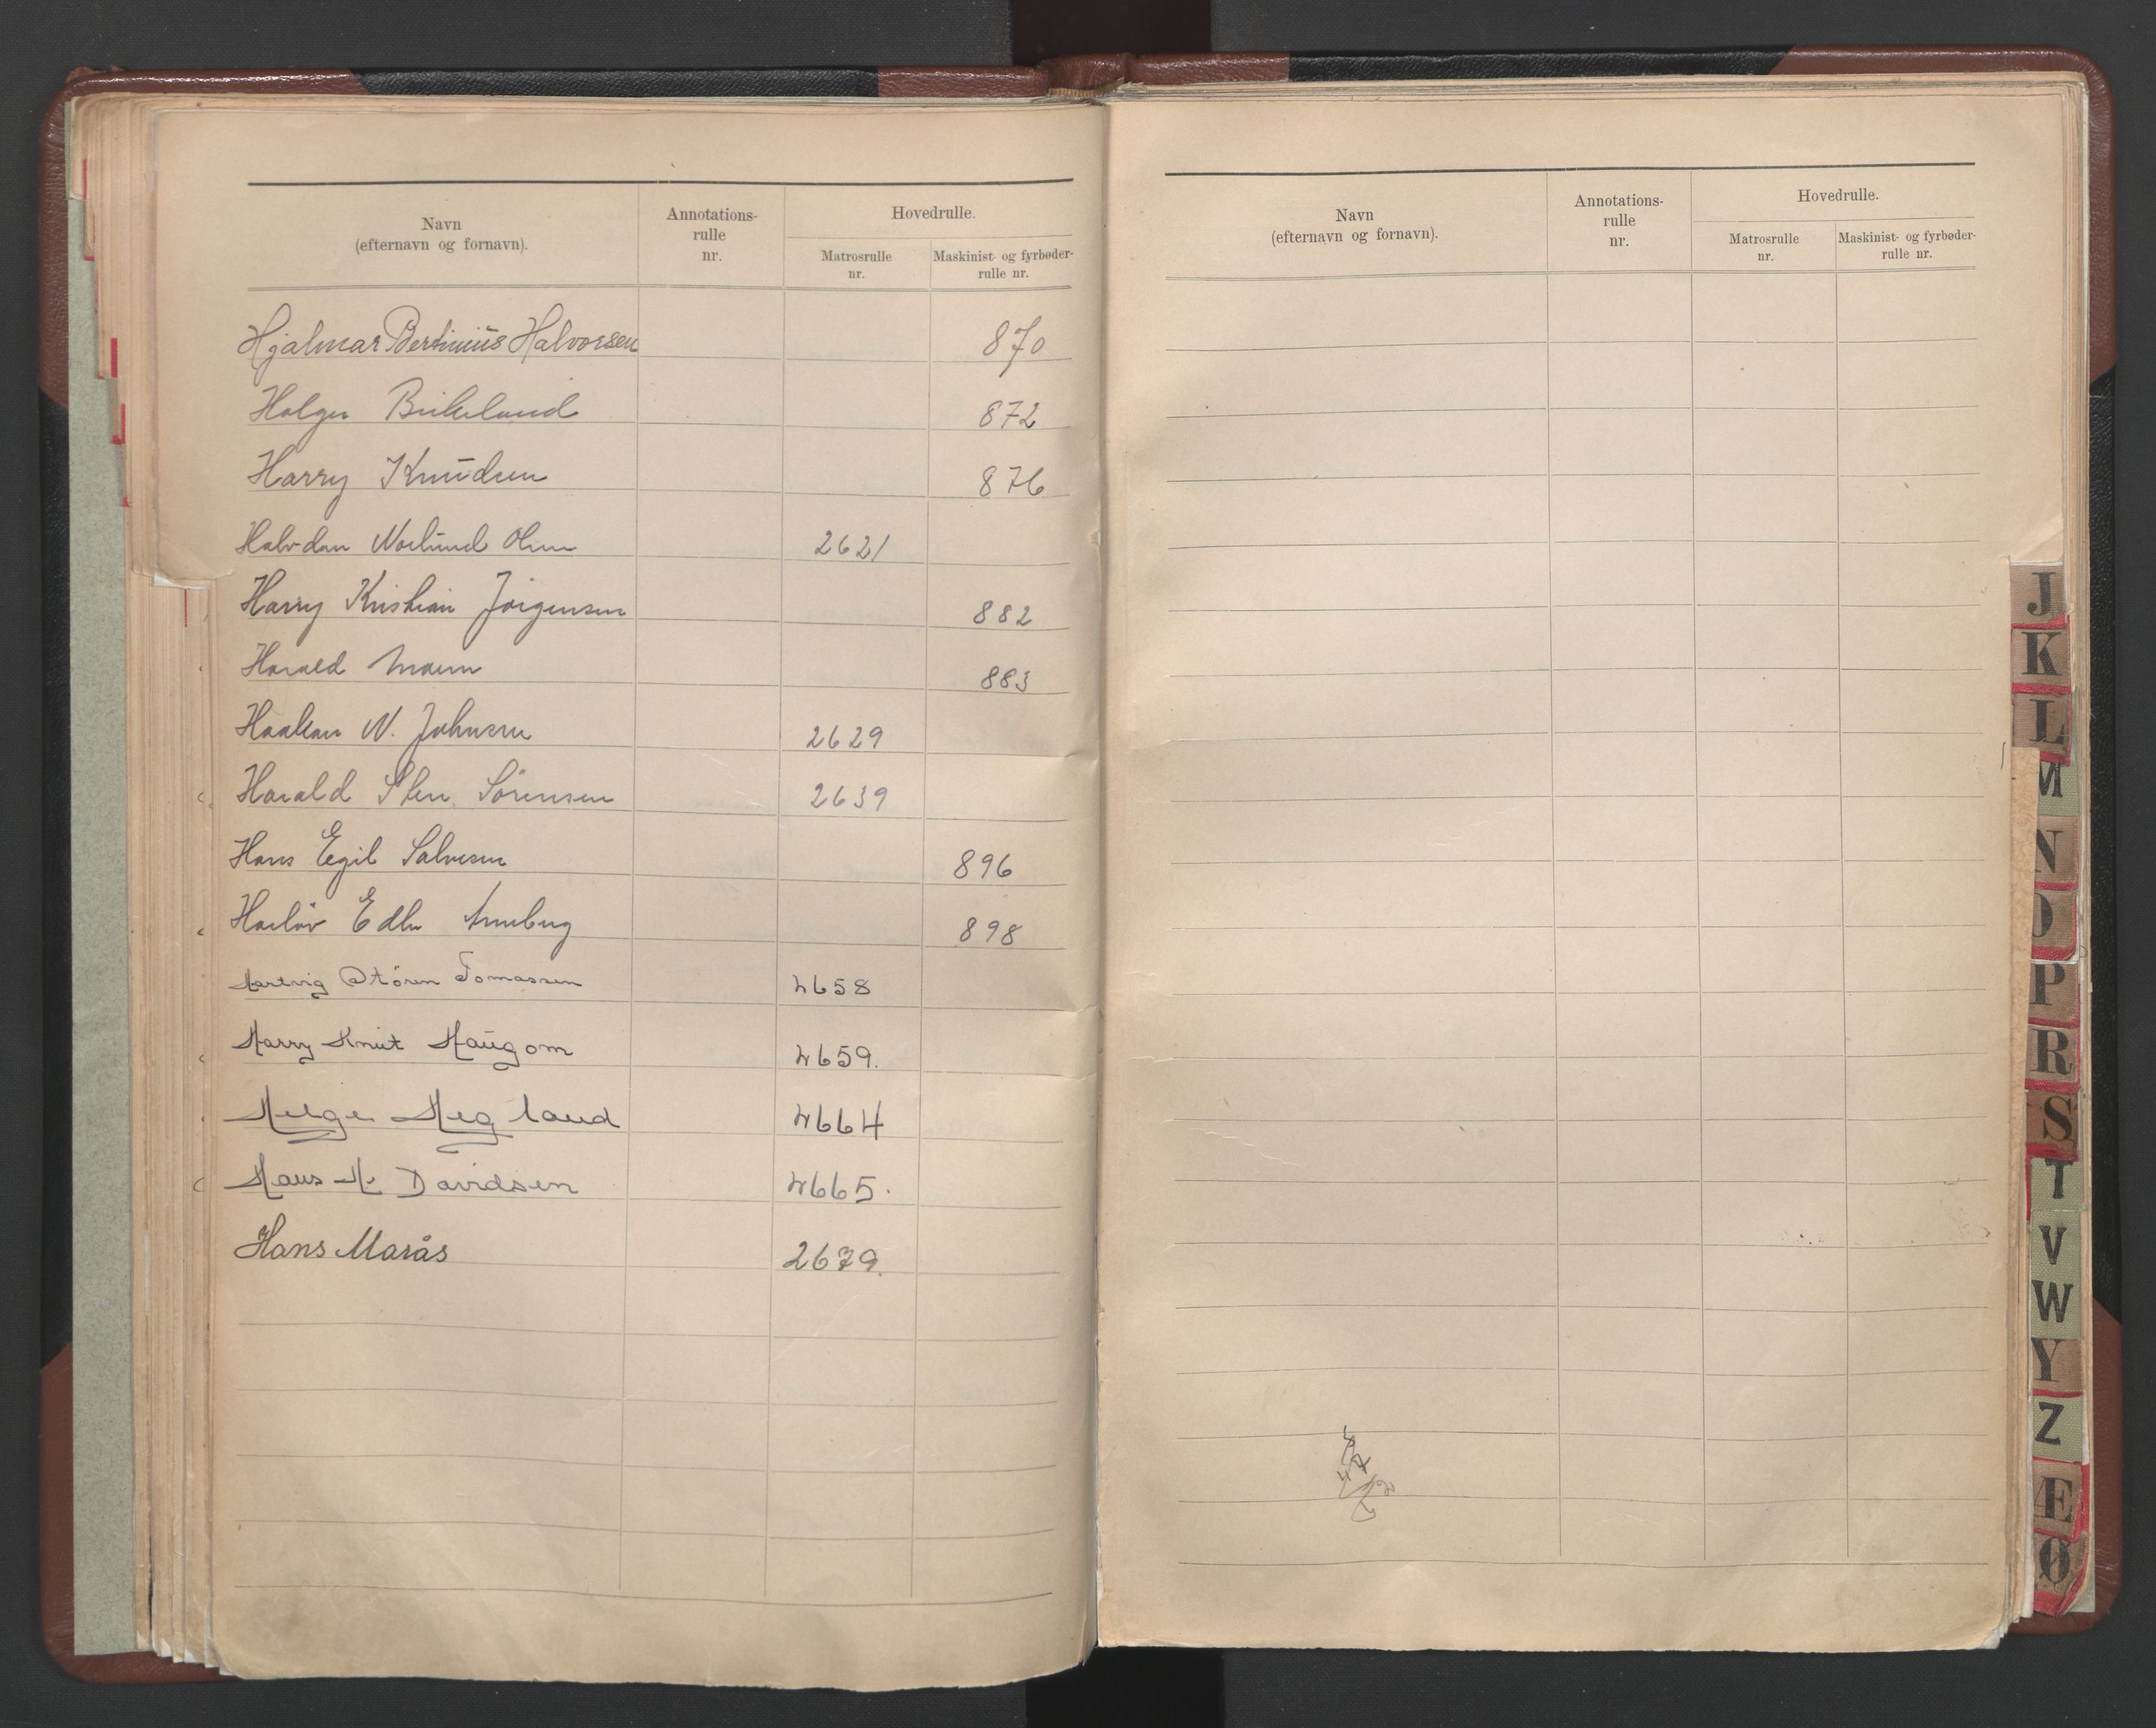 Navn
(efternavn og fornavn).
Annotations-
rulle
nr.
Hovedrulle.
Matrosrulle
nr.
Maskinist- og fyrbøder-
rulle nr.
Hjalmar Bertinius Halvorsen 870
Holger Birkeland 872
Harry Knudsen 876
Halvdan Norlund Olsen 2621
Harry Kristian Jörgensen 882
Harald 883
Haakon N. Johnsen 2629
Harald Sten Sörensen 2639
Hans Egil Salvesen 896
898
Hartvig Stören Tomassen 4658
Harry Knut Haugom 4659.
Helge Hegland 4664
Hans H. Davidsen 4665.
Hans Marås 2679.
Navn
(efternavn og fornavn).
Annotations-
rulle
nr.
Hovedrulle.
Matrosrulle
nr.
Maskinist- og fyrbøder-
rulle nr.
J
K
L
M
N
O
P
R
S
T
V
W
Y
Z
Æ
Ø